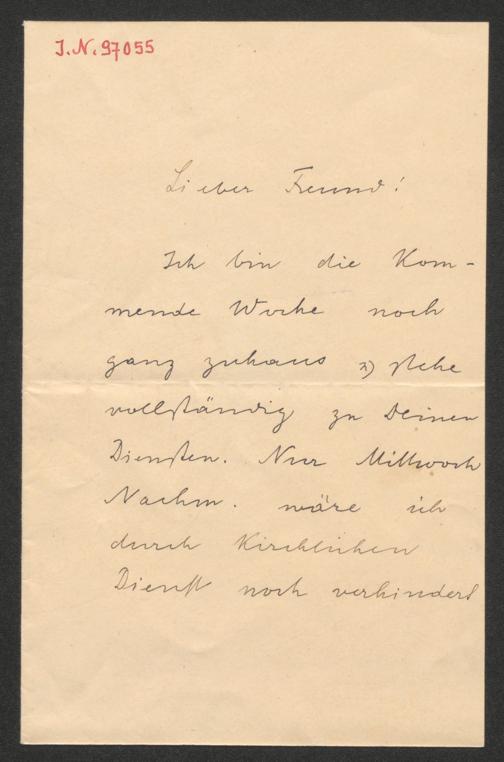 J.N. 97055
Lieber Freund!
Ich bin die Kom-
mende Woche noch
ganz zuhaus stehe
vollständig zu Deinen
Diensten. Nur Mittwoch
Nachm. wäre ich
durch Kirchlichen
Dienst noch verhindert